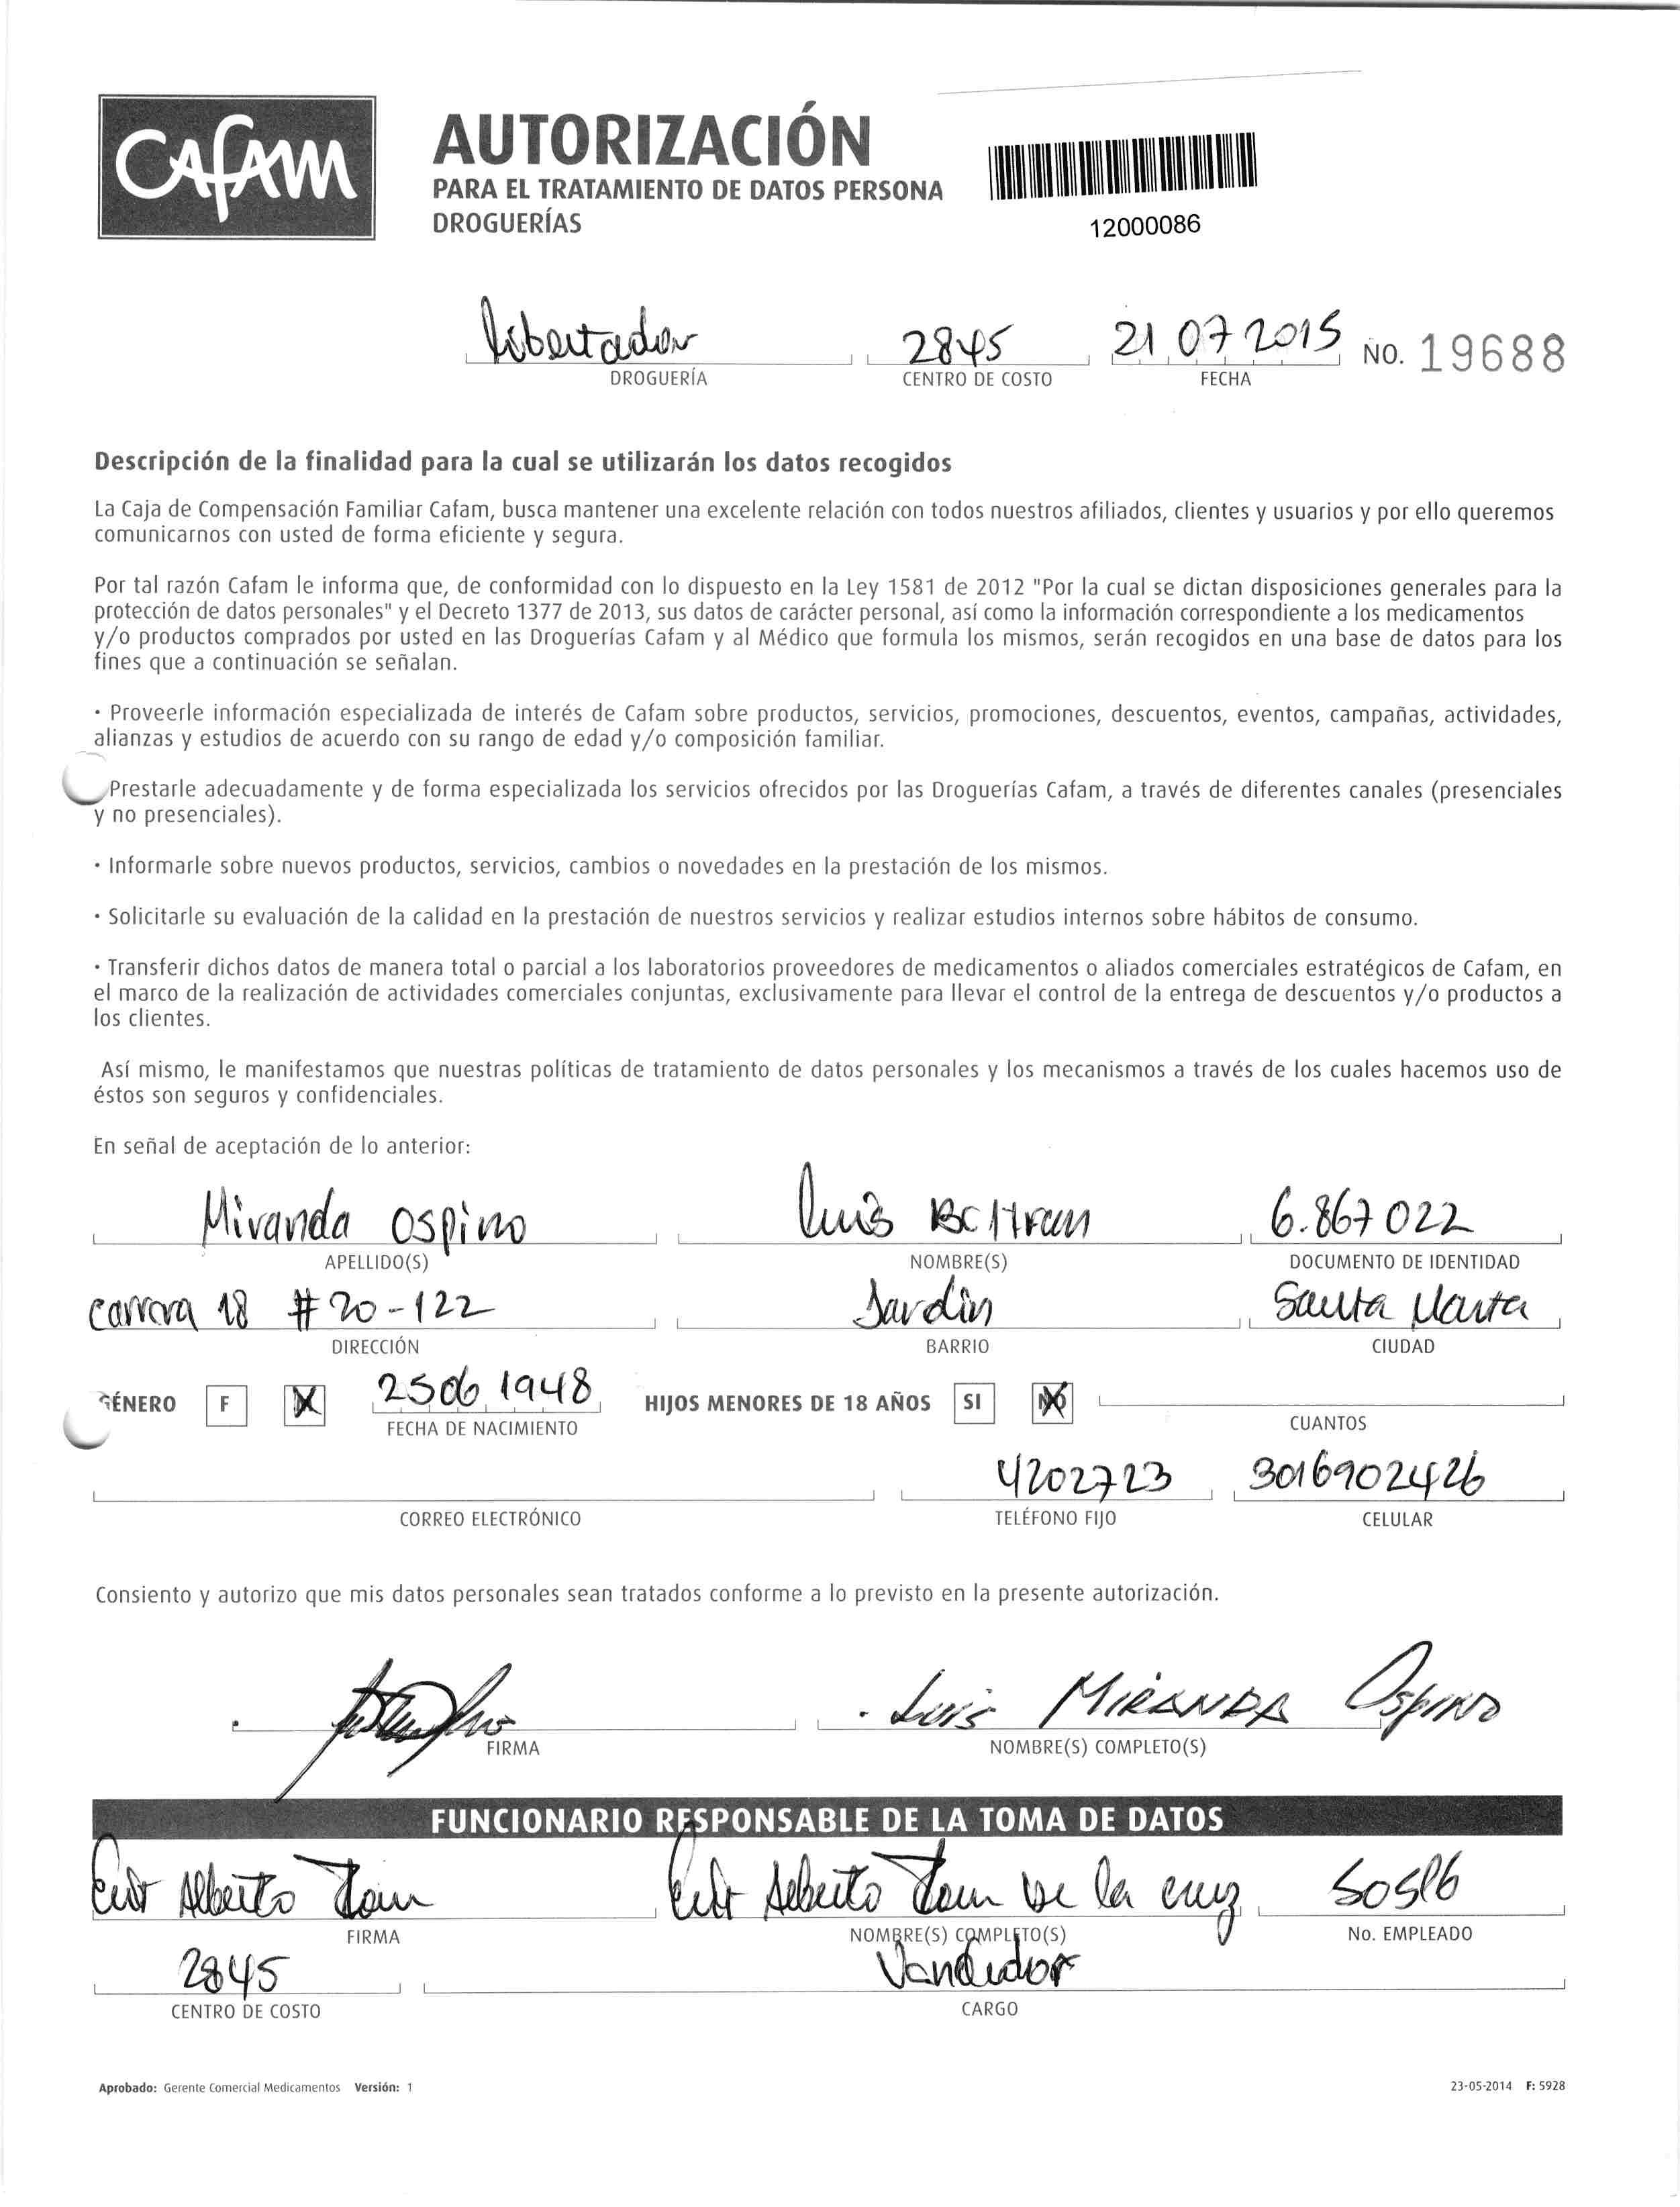 CAFAM
AUTORIZACIÓN
PARA EL TRATAMIENTO DE DATOS PERSONA
DROGUERÍAS
12000086
Libertador 2845 21 07 2015 NO. 19688
DROGUERÍA CENTRO DE COSTO FECHA
Descripción de la finalidad para la cual se utilizarán los datos recogidos
La Caja de Compensación Familiar Cafam, busca mantener una excelente relación con todos nuestros afiliados, clientes y usuarios y por ello queremos
comunicarnos con usted de forma eficiente y segura.
Por tal razón Cafam le informa que, de conformidad con lo dispuesto en la Ley 1581 de 2012 "Por la cual se dictan disposiciones generales para la
protección de datos personales" y el Decreto 1377 de 2013, sus datos de carácter personal, así como la información correspondiente a los medicamentos
y/o productos comprados por usted en las Droguerías Cafam y al Médico que formula los mismos, serán recogidos en una base de datos para los
fines que a continuación se señalan.
· Proveerle información especializada de interés de Cafam sobre productos, servicios, promociones, descuentos, eventos, campañas, actividades,
alianzas y estudios de acuerdo con su rango de edad y/o composición familiar.
Prestarle adecuadamente y de forma especializada los servicios ofrecidos por las Droguerías Cafam, a través de diferentes canales (presenciales
y no presenciales).
· Informarle sobre nuevos productos, servicios, cambios o novedades en la prestación de los mismos.
· Solicitarle su evaluación de la calidad en la prestación de nuestros servicios y realizar estudios internos sobre hábitos de consumo.
· Transferir dichos datos de manera total o parcial a los laboratorios proveedores de medicamentos o aliados comerciales estratégicos de Cafam, en
el marco de la realización de actividades comerciales conjuntas, exclusivamente para llevar el control de la entrega de descuentos y/o productos a
los clientes.
Así mismo, le manifestamos que nuestras políticas de tratamiento de datos personales y los mecanismos a través de los cuales hacemos uso de
éstos son seguros y confidenciales.
En señal de aceptación de lo anterior:
Miranda Ospino Luis Beltran 6.867022
APELLIDO(S) NOMBRE(S) DOCUMENTO DE IDENTIDAD
carrera 18 # 20-122 Jardin Santa Marta
DIRECCIÓN BARRIO CIUDAD
GÉNERO F X 25 06 1948 HIJOS MENORES DE 18 AÑOS SI NO
FECHA DE NACIMIENTO CUANTOS
4202723 3016902426
CORREO ELECTRÓNICO TELÉFONO FIJO CELULAR
Consiento y autorizo que mis datos personales sean tratados conforme a lo previsto en la presente autorización.
Luis MIRANDA Ospino
FIRMA NOMBRE(S) COMPLETO(S)
FUNCIONARIO RESPONSABLE DE LA TOMA DE DATOS
Alberto Alberto De la cruz
FIRMA NOMBRE(S) COMPLETO(S) No. EMPLEADO
2845 Vendedor
CENTRO DE COSTO CARGO
Aprobado: Gerente Comercial Medicamentos Versión: 1 23-05-2014 F: 5928